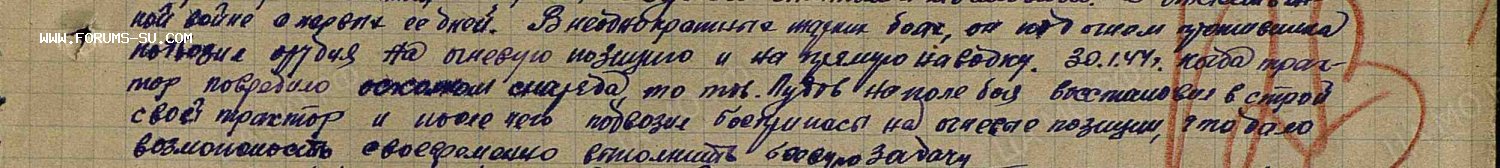 ной войне с первых ее дней. В неоднократных жарких боях, он под огнем противника
WWW.FORUMS-SU.COM
подвозил орудия на огневую позицию и на прямую наводку. 30.1.44г. когда трак-
тор повредило осколком снаряда то тов. Пудов на поле боя восстановил в строй
свой трактор и после чего подвозил боеприпасы на огневые позиции, что дало
возможность своевременно выполнить боевую задачу